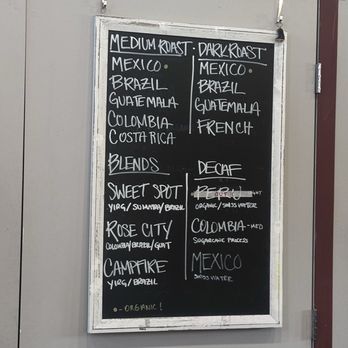 MEDIUM ROAST · DARK ROAST
MEXICO
BRAZIL
GUATEMALA
COLOMBIA
COSTA RICA
MEXICO
BRAZIL
GUATEMALA
FRENCH
BLENDS
SWEET SPOT
YIRG/SUMATRA/BRAZIL
ROSE CITY
COLOMBIA/BRAZIL/GUAT
CAMPFIRE
YIRG/BRAZIL
DECAF
PERU
ORGANIC/SWISS WATER
COLOMBIA-MED
SUGARCANE PROCESS
MEXICO
SWISS WATER
- ORGANIC!